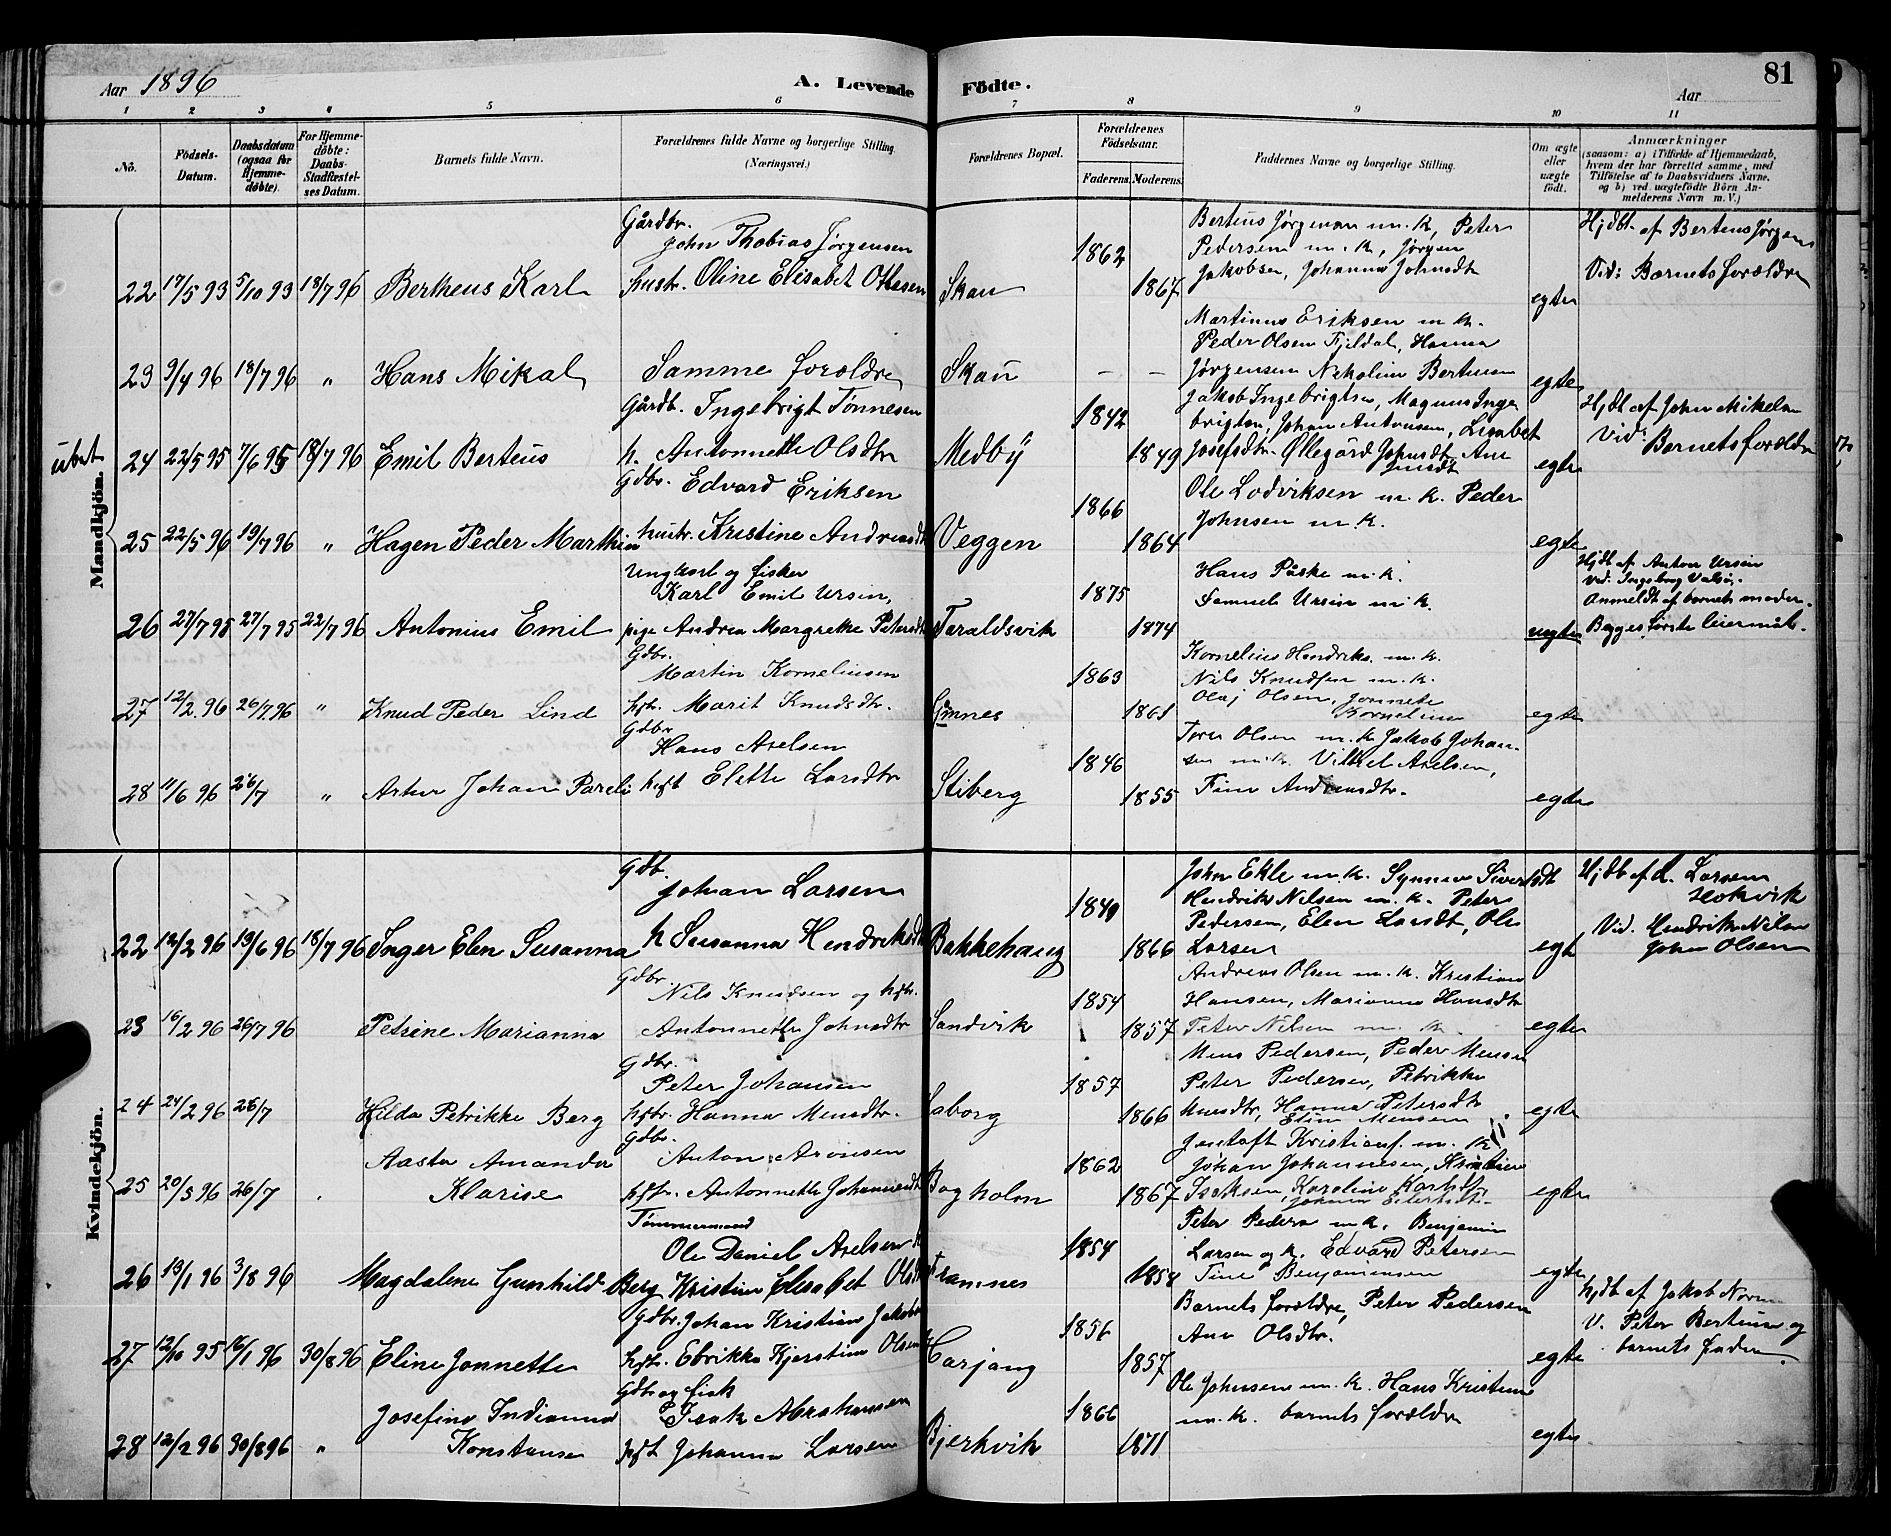 Aar 1896
A. Levende Födte.
81
Aar
1 2 3 4 5 6 7 8 9 10 11
No.
Födsels-Datum.
Daabsdatum (ogsaa for Hjemme-döbte).
For Hjemme-döbte: Daabs-Stadfæstelses Datum.
Barnets fulde Navn.
Forældrenes fulde Navne og borgerlige Stilling (Næringsvei.)
Forældrenes Bopæl.
Forældrenes Födselsaar.
Faderens. Moderens.
Faddernes Navne og borgerlige Stilling.
Om ægte eller uægte födt.
Anmærkninger
(saasom: a) i Tilfælde af Hjemmedaab,
hvem der har forrettet samme, med
Tilföielse af to Daabsvidners Navne,
og b) ved uægtefödte Börn An-
melderens Navn m. V.)
Mandkjön.
Gårdbr.
John Thobias Jørgensen
22 17/5 93 5/10 93 18/7 96 Bertheus Karl
hustr. Oline Elisabet Ottesen
Skau 1862 1867
Berteus Jørgensen m. k, Peter
Pedersen m. k, Jørgen
Jakobsen, Johanna Johnsdt
egte
Hjdbt. af Berteus Jørgens
Vid: Barnets forældre
23 9/4 96 18/7 96 " Hans Mikal
Samme forældre
Skau - -
Martinus Eriksen m k.
Peder Olsen Fjeldal, Hanna
Jørgensen Nikoline Berteusen
egte
24 22/5 95 7/6 95 18/7 96 Emil Berteus
Gårdb. Ingebrigt Tønnesen
h. Antonnette Olsdtr
Medby 1842 1849
Jakob Ingebrigtsen, Magnus Inge
brigtsen, Johan Antonsen, Lisabet
Josefsdtr. Øllegård Johnsdt, Ane
egte
Hjdt af John Mikelsen
Vid: Barnets forældre
25 22/5 96 19/7 96 " Hagen Peder Marthin
Gdbr. Edvard Eriksen
hustr. Kristine Andreasdt
Veggen 1866 1864
Ole Lodviksen m. k. Peder
Johnsen m k.
egte
26 27/7 95 27/7 95 22/7 96 Antonius Emil
Ungkarl og fisker
Karl Emil Ursin,
pige Andrea Margrethe Petersdt
Taraldsvik 1875 1874
Hans Påske m. k.
Samuel Ursin m k.
uegte
Hjdt af Anton Ursin
Vid. Ingeborg Valsø.
Anmeldt af barnets moder.
Begges første leiermål.
27 12/2 96 26/7 96 " Knud Peder Lind
Gdbr.
Martin Korneliusen
hfr. Marit Knudsdtr.
Emnes 1863 1861
Kornelius Hendriks. m. k.
Nils Knudsen m. k.
Olaj Olsen, Jonnete
Korneliusen
egte
28 11/6 96 26/7 " Artur Johan Pareli
Gdbr
Hans Axelsen
hust Elette Larsdtr
Stiberg 1846 1855
Tore Olsen m. k Jakob Johan-
sen m. k. Vilhel Axelsen,
Tine Andreasdtr.
egte
Kvindekjön.
22 12/2 96 19/6 96 18/7 96 Inger Elen Susanna
Gdb.
Johan Larsen
h Susanna Hendriksdt
Bakkehaug 1849 1866
John Ekle m. k. Synnøve Siversdt
Hendrik Nilsen m. k. Peter
Pedersen, Elen Larsdt, Ole
Larsen
egte
Hjdb af L. Larsen
Hokvik
Vid. Hendrik Nilsen
John Olsen
23 16/2 96 26/7 96 Petrine Marianna
Gdbr.
Nils Knudsen og hfr.
Antonnette Johnsdtr
Sandvik 1854 1857
Andreas Olsen m. k. Kristian
Hansen, Marianne Hansdtr
Peter Nilsen m. k.
egte
24 24/2 96 26/7 Hilda Petrikke Berg
Gdbr.
Peter Johansen
hfr. Hanna Monsdtr.
Laborg 1857 1866
Mons Pedersen, Peder Monsen
Peter Pedersen, Petrikke
Monsdtr, Hanna Petersdtr
Eline Monsen
egte
25 20/5 96 26/7 Aasta Amanda
Klarise
Gdbr.
Anton Aronsen
hfr. Antonnette Johannesdt
Bogholm 1862 1867
Jentoft Kristians. m. k
Johan Johannesen, Kristian
Isaksen, Karoline Karlsdtr
egte
26 13/1 96 3/8 96 Magdalene Gunhild Berg
Tømmermand
Ole Daniel Axelsen
Kristine Elisabet Olsdtr
Framnes 1854 1858
Peter Peders m. k. Benjamin
Larsen og k. Edvard Petersen
Tine Benjaminsen
egte
27 12/10 95 16/1 96 30/8 96 Eline Jonnette
Gdbr. Johan Kristian Jakobs
hfr. Ebrikke Kjerstine Olsen
Harjang 1856 1857
Barnets forældre, Peter Pedersen
Ane Olsdtr.
egte
hjdt af Jakob Norm
V. Peter Berteusen og
barnets fader.
28 12/2 96 30/8 96 " Josefine Indianna
Konstanse
Gdbr og fisk
Isak Abrahamsen
Johanna Larsen
Bjerkvik 1866 1871
Ole Johnsen m. k. Hans Kristians
m. k. barnets forældre
egte